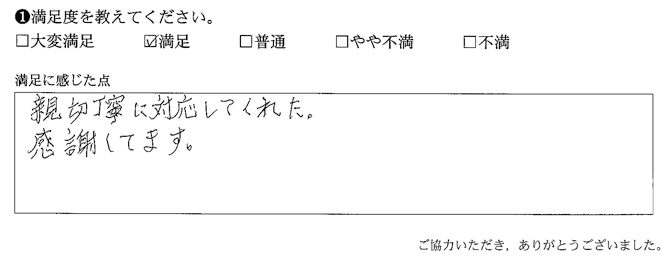 ❶満足度を教えてください。
□大変満足 ☑満足 □普通 □やや不満 □不満
満足に感じた点
親切丁寧に対応してくれた。
感謝してます。
ご協力いただき，ありがとうございました。